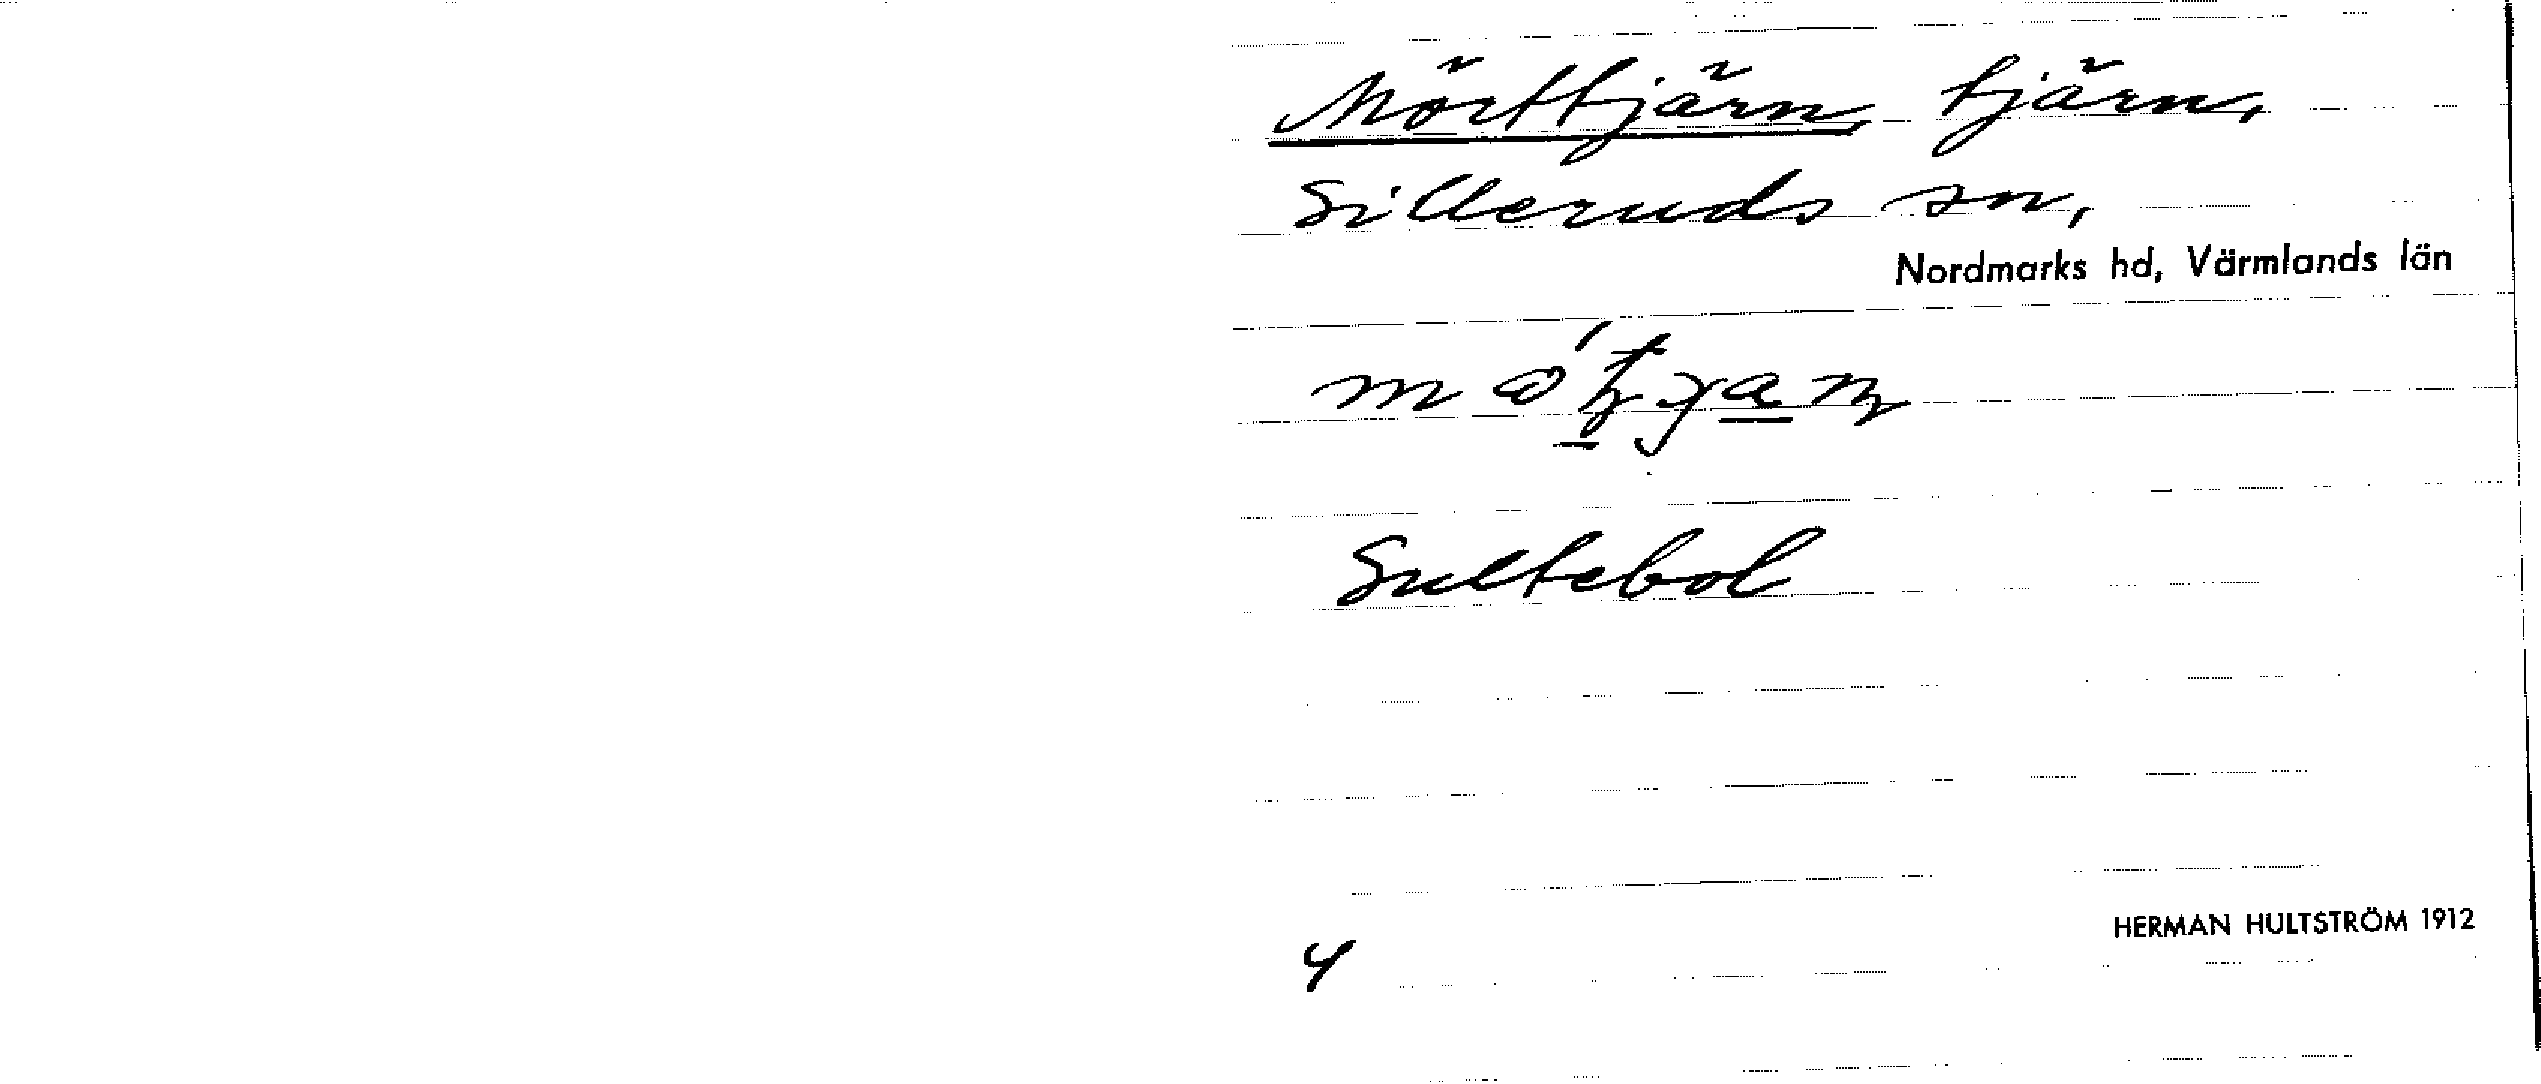 Mörttjärn, tjärn,
Silleruds sn,
Nordmarks hd, Värmlands län
Sultebol
HERMAN HULTSTRÖM 1912
4